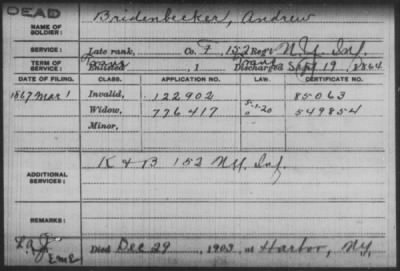 DEAD
NAME OF SOLDIER: Bridenbecker, Andrew
SERVICE: Late rank, Co. F, 152 Reg't N.Y. Inf.
TERM OF SERVICE: Enlisted , 1 Discharged Sept 19, 1864
DATE OF FILING. CLASS. APPLICATION NO. LAW. CERTIFICATE NO.
1867 Mar 1 Invalid, 122902 85063
Widow, 776417 549854
Minor,
ADDITIONAL SERVICES: K & B 152 N.Y. Inf.
REMARKS:
EME
Died Dec 29, 1903, at Harbor, N.Y.